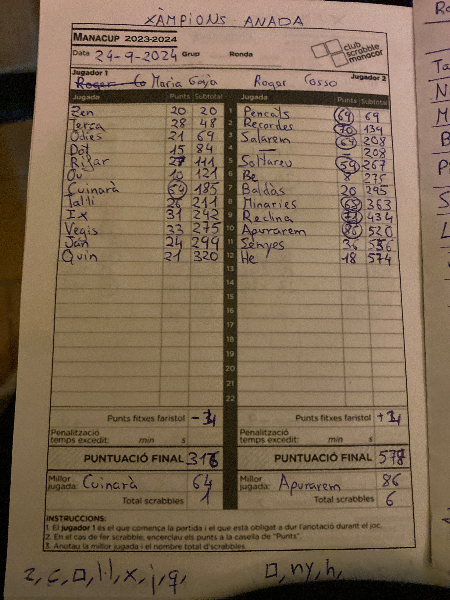 XÀMPIONS ANADA
MANACUP 2023-2024
Data 24-9-2024 Grup Ronda
club scrabble manacor
Jugador 1 Jugador 2
Maria Gaja Roger Cosso
Jugada Punts Subtotal Jugada Punts Subtotal
Zen 20 20 1 Pencals 69 69
Terca 28 48 2 Recordes 134
Odies 21 69 3 Salarem 208
Dot 15 84 4 — 208
27 111 5 Soltareu 59 267
Ou 10 121 6 Be 8 275
Cuinarà 64 185 7 Baldàs 20 295
26 211 8 Minaries 68 363
Ix 31 242 9 Reclina 434
Vegis 33 275 10 Apurarem 86 520
Jan 24 299 11 Senyes 36 556
Quin 21 320 12 He 18 574
13
14
15
16
17
18
19
20
21
22
Punts fitxes faristol Punts fitxes faristol
Penalització temps excedit: min s Penalització temps excedit: min s
PUNTUACIÓ FINAL 316 PUNTUACIÓ FINAL 578
Millor jugada: Cuinarà 64 Millor jugada: Apurarem 86
Total scrabbles 1 Total scrabbles 6
INSTRUCCIONS:
1. El jugador 1 és el que comença la partida i el que està obligat a dur l'anotació durant el joc.
2. En cas de fer scrabble, encercleu els punts a la casella de "Punts".
3. Anotau la millor jugada i el nombre total d'scrabbles.
z, ç, □, l·l, x, j, q, □, ny, h,